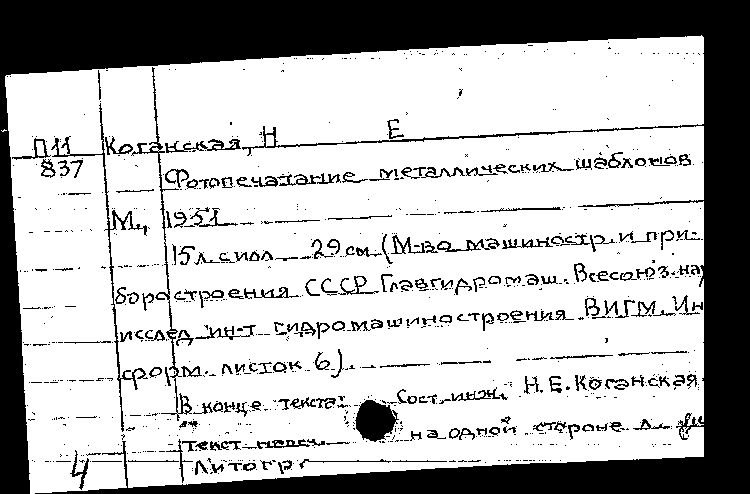 П11 Коганская, Н Е
837 Фотопечатание металлических шаблонов
М., 1951
15 л. с илл 29 см (М-во машиностр. и при-
боростроения СССР Главгидромаш. Всесоюз. на
исслед ин-т гидромашиностроения ВИГМ. Ин
форм. листок 6).
В конце текста: Сост. инж. Н.Е. Коганская
текст на одной стороне л.
4 Литогр